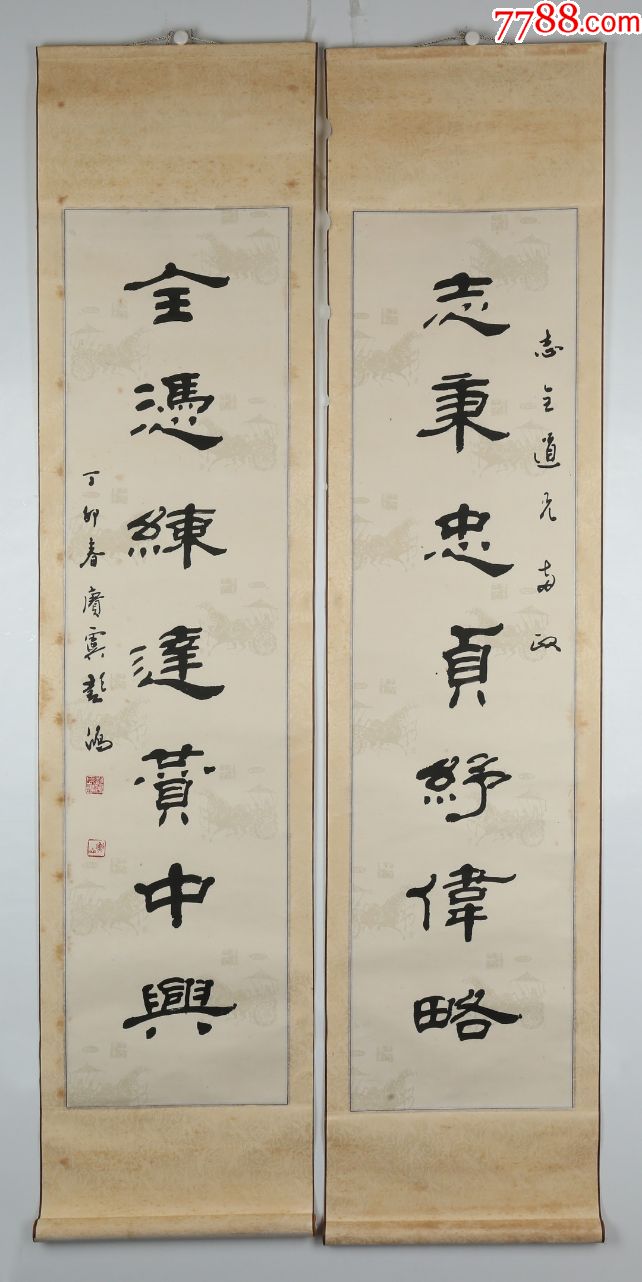 7788.com
志全道兄两政
志秉忠貞紓偉略
全憑練達贊中興
丁卯春賡虞彭鴻